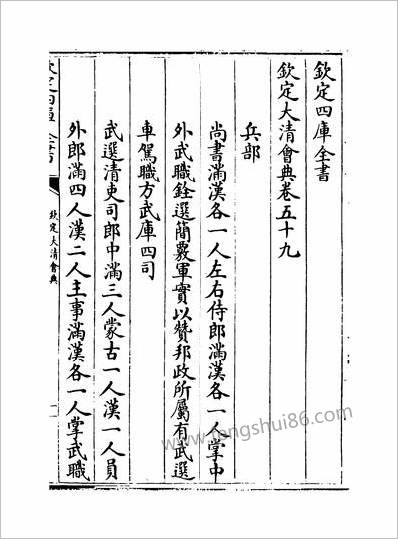 欽定四庫全書
欽定大清會典卷五十九
兵部
尚書滿漢各一人左右侍郎滿漢各一人掌中
外武職銓選簡覈軍實以贊邦政所屬有武選
車駕職方武庫四司
武選清吏司郎中滿三人蒙古一人漢一人員
外郎滿四人漢二人主事滿漢各一人掌武職
欽定四庫全書
欽定大清會典
www.fengshui86.com